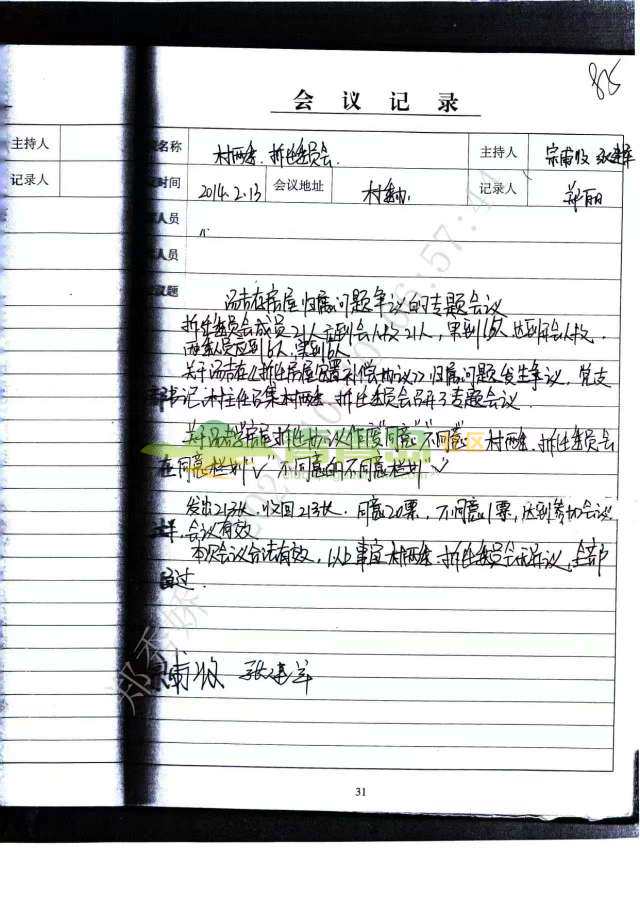 85
会议记录
主持人 名称 村两委.拆迁委员会. 主持人 宗甫收 张建军
记录人 时间 2014.2.13 会议地址 村委办 记录人 郑丽
人员
人员
议题 汤吉在房屋归属问题争议的专题会议
拆迁委员会成员21人应到会人数21人,实到 人 达到开会人数.
两委人员应到6人,实到6人
关于汤吉在《拆迁房屋安置补偿协议》归属问题发生争议,党支
部书记,村主任召集村两委.拆迁委员会召开了专题会议.
关于汤吉在房屋拆迁协议作废"同意""不同意" 村两委.拆迁委员会
在同意栏划"√" 不同意的不同意栏划"√"
发出213张,收回213张,同意20票,不同意1票,达到参加会议
会议有效.
本次会议合法有效,以上事宜村两委.拆迁委员会无异议,全部
通过.
宗甫收 张建军
31